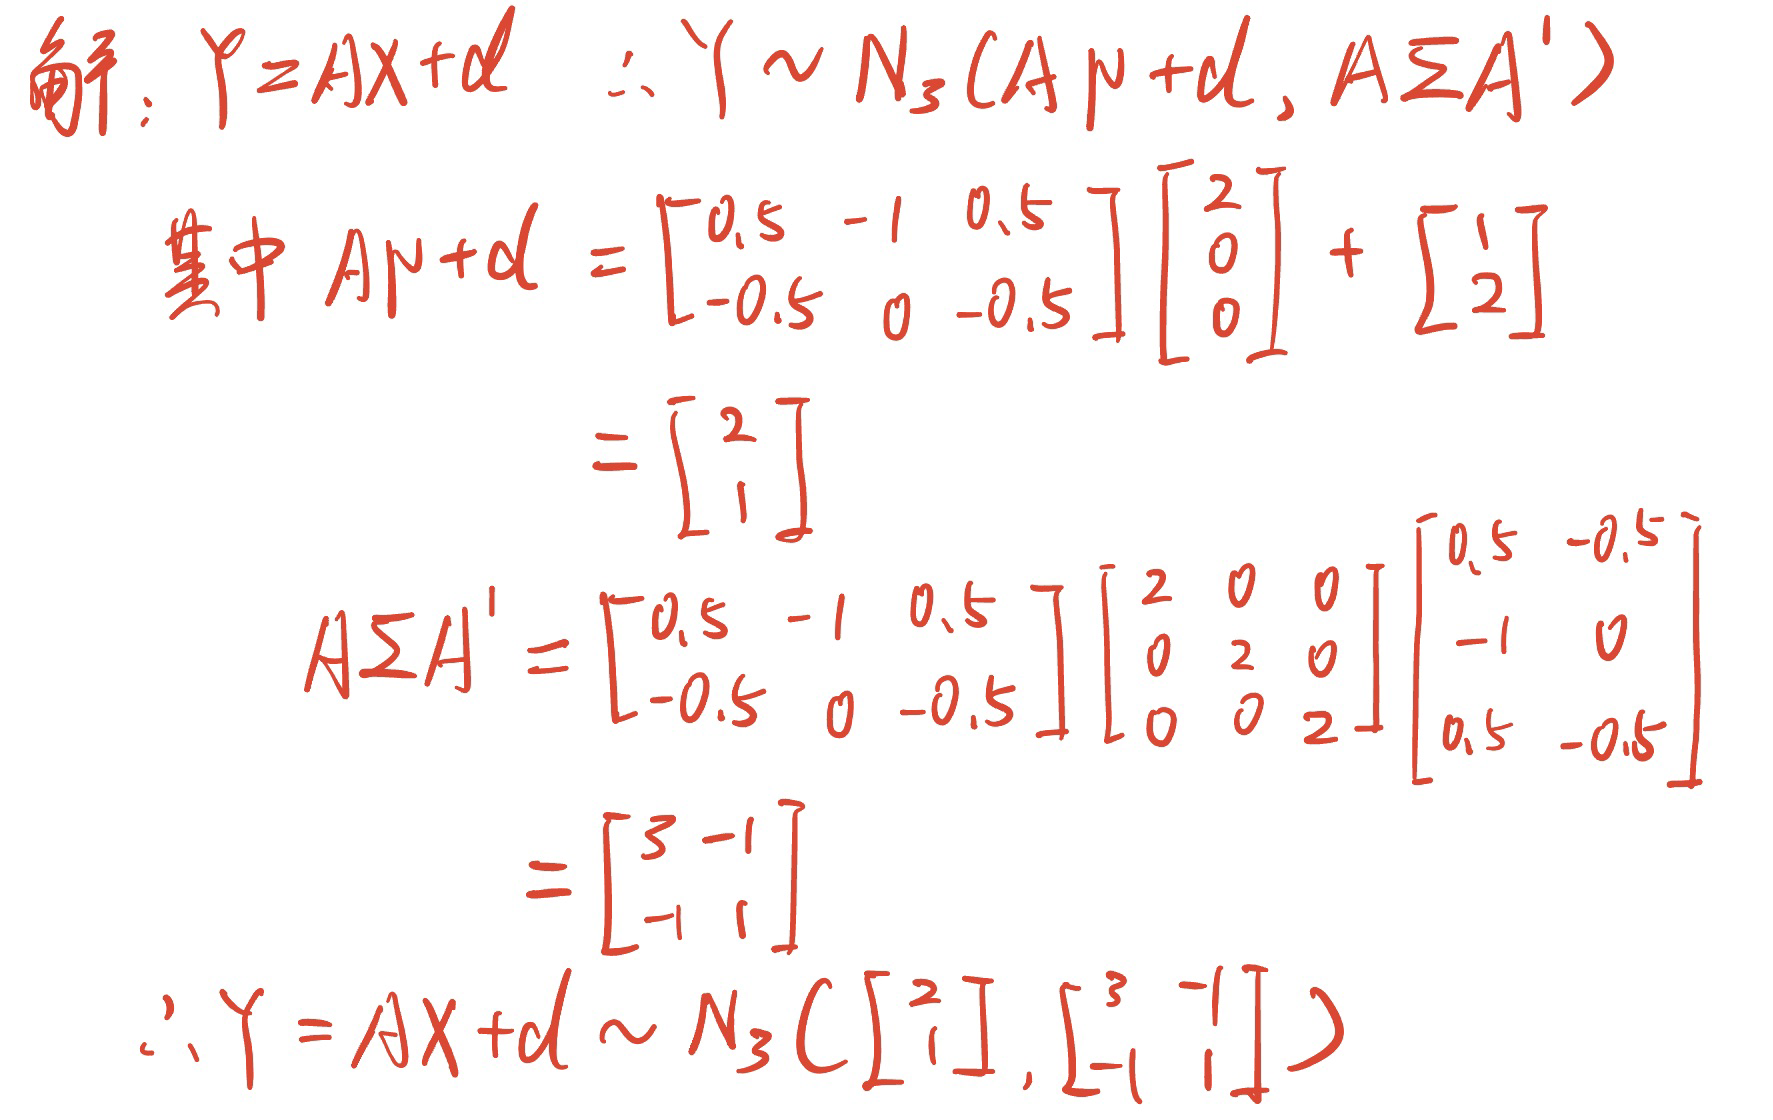 解: Y=AX+d ∴Y~N₃(Aμ+d, AΣA')
其中 Aμ+d = [0.5 -1 0.5; -0.5 0 -0.5] [2; 0; 0] + [1; 2]
= [2; 1]
AΣA' = [0.5 -1 0.5; -0.5 0 -0.5] [2 0 0; 0 2 0; 0 0 2] [0.5 -0.5; -1 0; 0.5 -0.5]
= [3 -1; -1 1]
∴Y = AX+d ~ N₃([2; 1], [3 -1; -1 1])